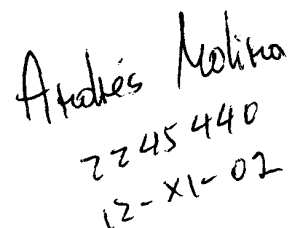 Andrés Molina
2245440
12-XI-02